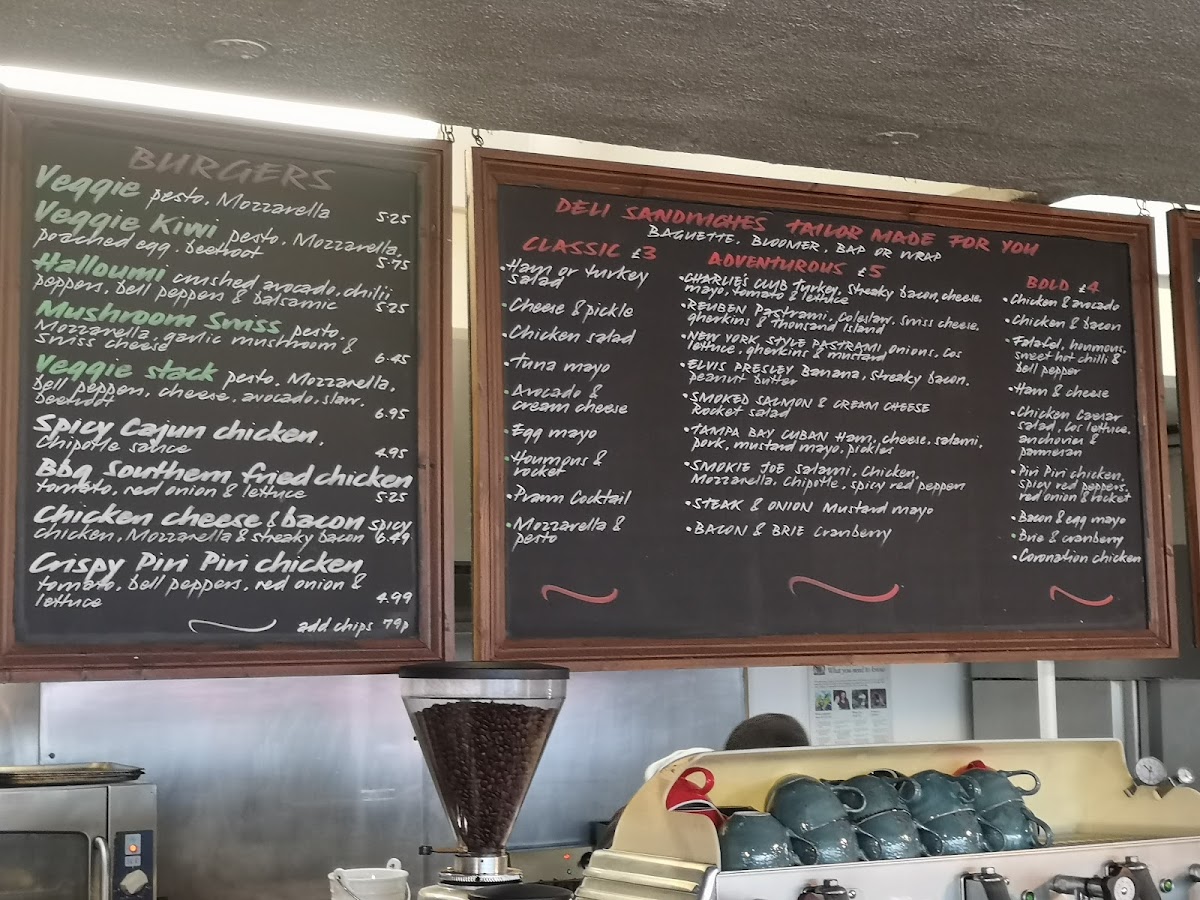 BURGERS
Veggie pesto, Mozzarella 5.25
Veggie Kiwi pesto, Mozzarella,
poached egg, beetroot 5.75
Halloumi crushed avocado, chilli
peppers, bell peppers & balsamic 5.25
Mushroom Swiss pesto,
Mozzarella, garlic mushroom &
swiss cheese 6.45
Veggie stack pesto, Mozzarella,
bell pepper, cheese, avocado, slaw,
beetroot 6.95
Spicy Cajun chicken,
Chipotle sauce 4.95
Bbq Southern fried chicken
tomato, red onion & lettuce 5.25
Chicken cheese & bacon spicy
chicken, Mozzarella & streaky bacon 6.49
Crispy Piri Piri chicken
tomato, bell peppers, red onion &
lettuce 4.99
add chips 79p
DELI SANDWICHES TAILOR MADE FOR YOU
BAGUETTE, BLOOMER, BAP OR WRAP
CLASSIC £3
•Ham or turkey
salad
•Cheese & pickle
•Chicken salad
•Tuna mayo
•Avocado &
cream cheese
•Egg mayo
•Houmous &
rocket
•Prawn Cocktail
•Mozzarella &
pesto
ADVENTUROUS £5
•CHARLIE'S CLUB turkey, streaky bacon, cheese,
mayo, tomato & lettuce
•REUBEN Pastrami, Coleslaw, Swiss cheese,
gherkins & Thousand Island
•NEW YORK STYLE PASTRAMI Onions, Cos
lettuce, gherkins & mustard
•ELVIS PRESLEY Banana, Streaky bacon,
peanut butter
•SMOKED SALMON & CREAM CHEESE
Rocket salad
•TAMPA BAY CUBAN Ham, cheese, salami,
pork, mustard mayo, pickles
•SMOKIE JOE Salami, Chicken,
Mozzarella, Chipotle, spicy red pepper
•STEAK & ONION Mustard mayo
•BACON & BRIE Cranberry
BOLD £4
•Chicken & avocado
•Chicken & bacon
•Falafel, houmous,
sweet hot chilli &
bell pepper
•Ham & cheese
•Chicken Caesar
salad, Cos lettuce,
anchovies &
parmesan
•Piri Piri chicken,
spicy red peppers,
red onion & rocket
•Bacon & egg mayo
•Brie & cranberry
•Coronation chicken
What you need to know